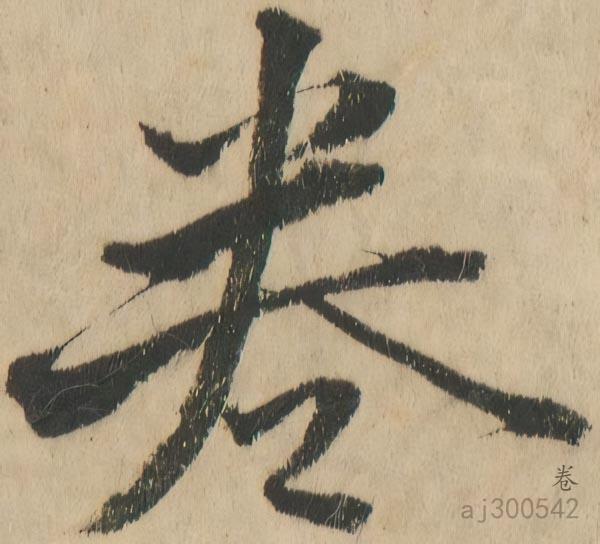 卷
卷
aj300542